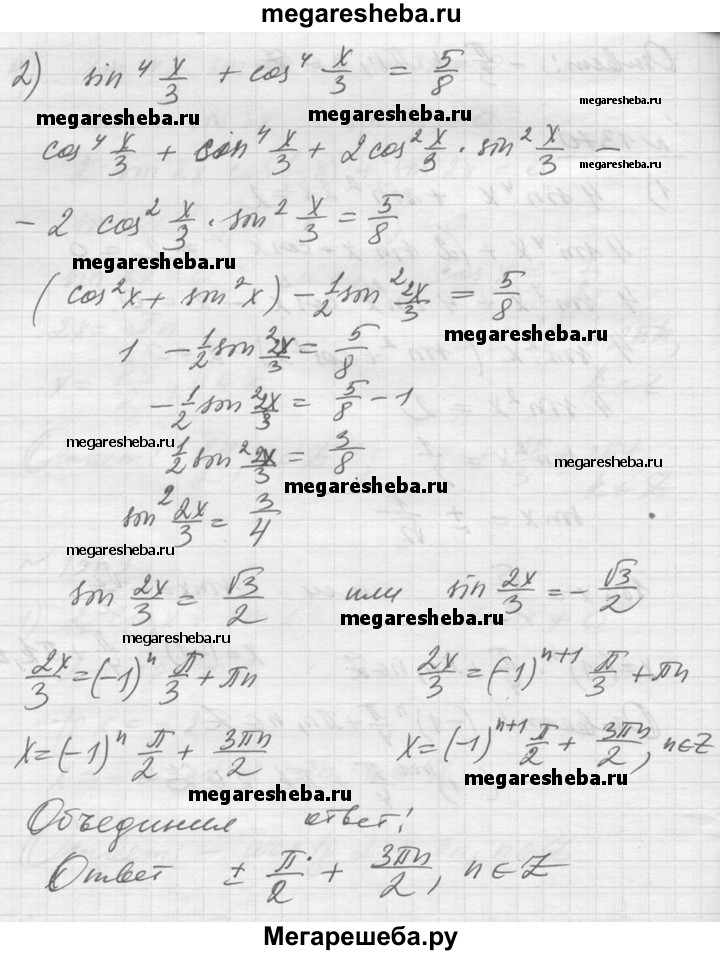 megaresheba.ru
2) sin⁴ x/3 + cos⁴ x/3 = 5/8
megaresheba.ru
megaresheba.ru
cos⁴ x/3 + sin⁴ x/3 + 2cos² x/3 · sin² x/3 −
− 2 cos² x/3 · sin² x/3 = 5/8
megaresheba.ru
(cos²x + sin²x) − 1/2 sin² 2x/3 = 5/8
megaresheba.ru
1 − 1/2 sin² 2x/3 = 5/8
− 1/2 sin² 2x/3 = 5/8 − 1
megaresheba.ru
1/2 sin² 2x/3 = 3/8
megaresheba.ru
megaresheba.ru
sin² 2x/3 = 3/4
megaresheba.ru
sin 2x/3 = √3/2 или sin 2x/3 = − √3/2
megaresheba.ru
megaresheba.ru
2x/3 = (−1)ⁿ π/3 + πn 2x/3 = (−1)ⁿ⁺¹ π/3 + πn
x = (−1)ⁿ π/2 + 3πn/2 x = (−1)ⁿ⁺¹ π/2 + 3πn/2, n∈Z
megaresheba.ru
megaresheba.ru
Объединил ответ!
Ответ ± π/2 + 3πn/2, n∈Z
Мегарешеба.ру